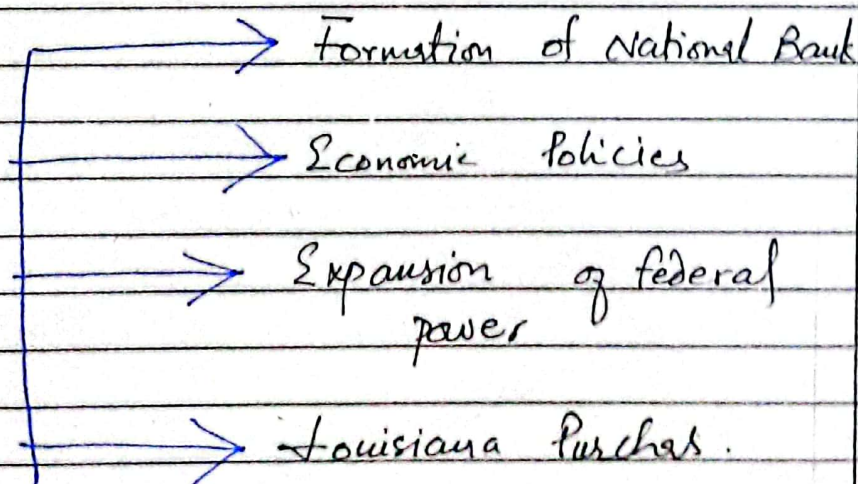 Formation of National Bank
Economic Policies
Expansion of federal
power
Louisiana Purchas.